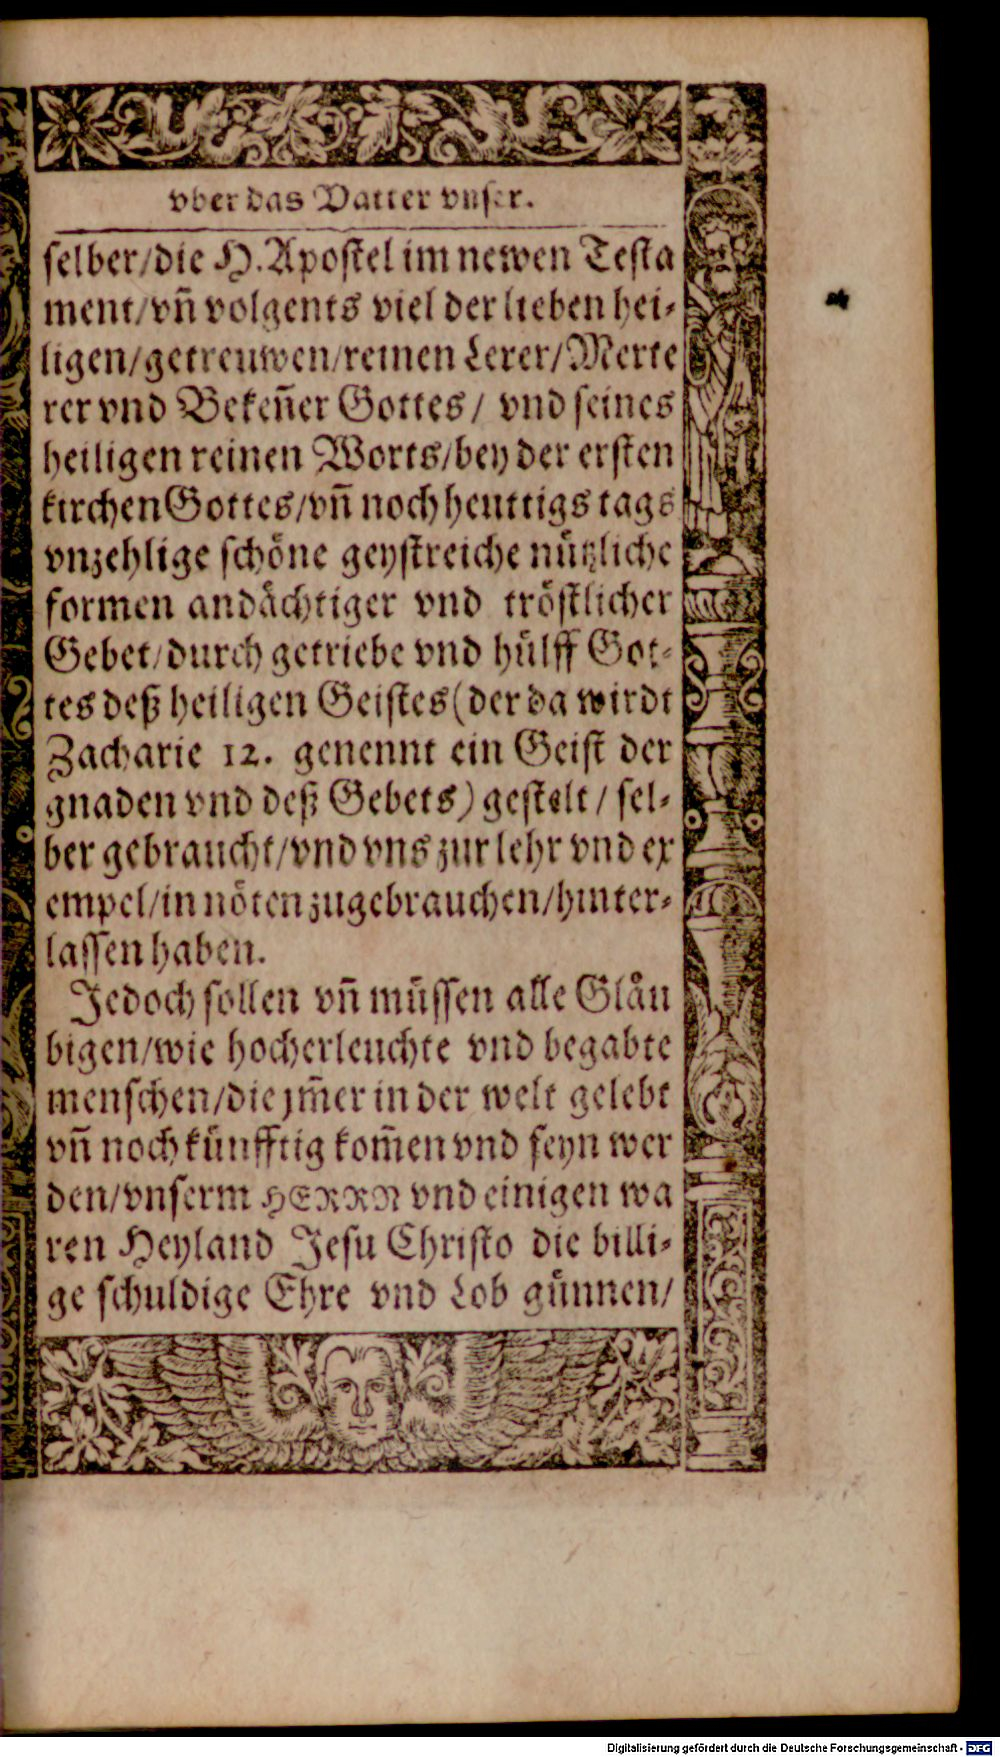 vber das Vatter vnser.
selber/die H. Apostel im newen Testa
ment/vñ volgents viel der lieben hei-
ligen/getreuwen/reinen Lerer/Merte
rer vnd Bekeñer Gottes/ vnd seines
heiligen reinen Worts/bey der ersten
kirchen Gottes/vñ noch heuttigs tags
vnzehlige schöne geystreiche nützliche
formen andächtiger vnd tröstlicher
Gebet/durch getriebe vnd hülff Got-
tes deß heiligen Geistes(der da wirdt
Zacharie 12. genennt ein Geist der
gnaden vnd deß Gebets) gestelt/ sel-
ber gebraucht/vnd vns zur lehr vnd ex
empel/in nöten zugebrauchen/hinter-
lassen haben.
Jedoch sollen vñ müssen alle Gläu
bigen/wie hocherleuchte vnd begabte
menschen/die jm̃er in der welt gelebt
vñ noch künfftig kom̃en vnd seyn wer
den/vnserm HERRN vnd einigen wa
ren Heyland Jesu Christo die billi-
ge schuldige Ehre vnd Lob günnen/
Digitalisierung gefördert durch die Deutsche Forschungsgemeinschaft - DFG